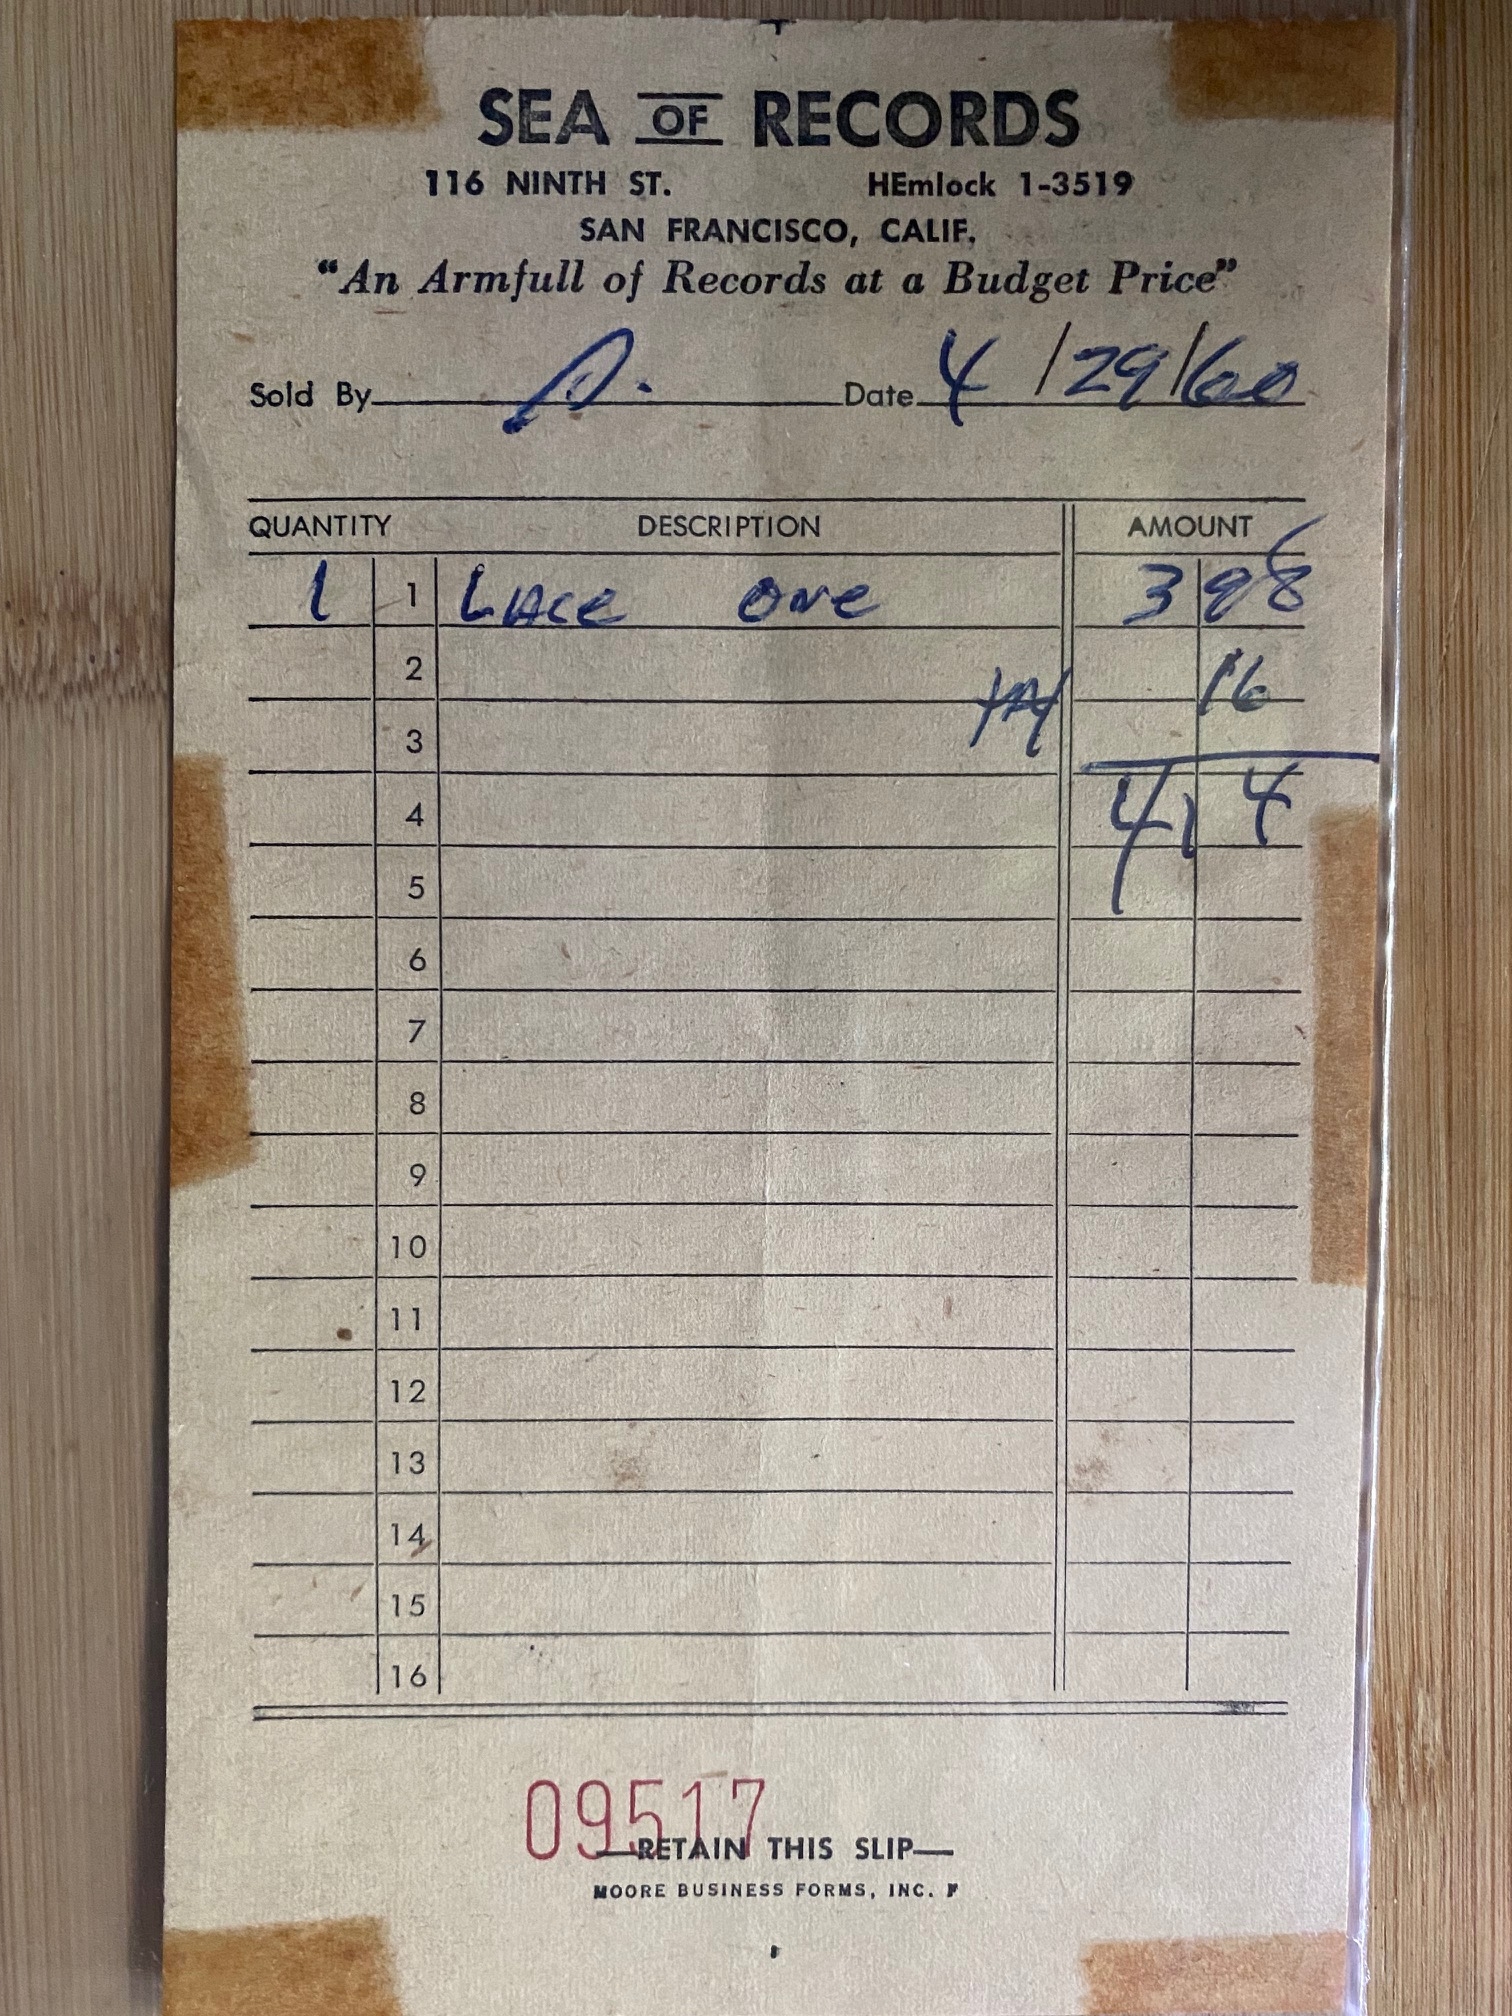 SEA OF RECORDS
116 NINTH ST. HEmlock 1-3519
SAN FRANCISCO, CALIF.
"An Armfull of Records at a Budget Price"
Sold By Date 4/29/60
QUANTITY DESCRIPTION AMOUNT
1 1 LACE ONE 3 98
2 16
3
4 4 14
5
6
7
8
9
10
11
12
13
14
15
16
09517
—RETAIN THIS SLIP—
MOORE BUSINESS FORMS, INC. F